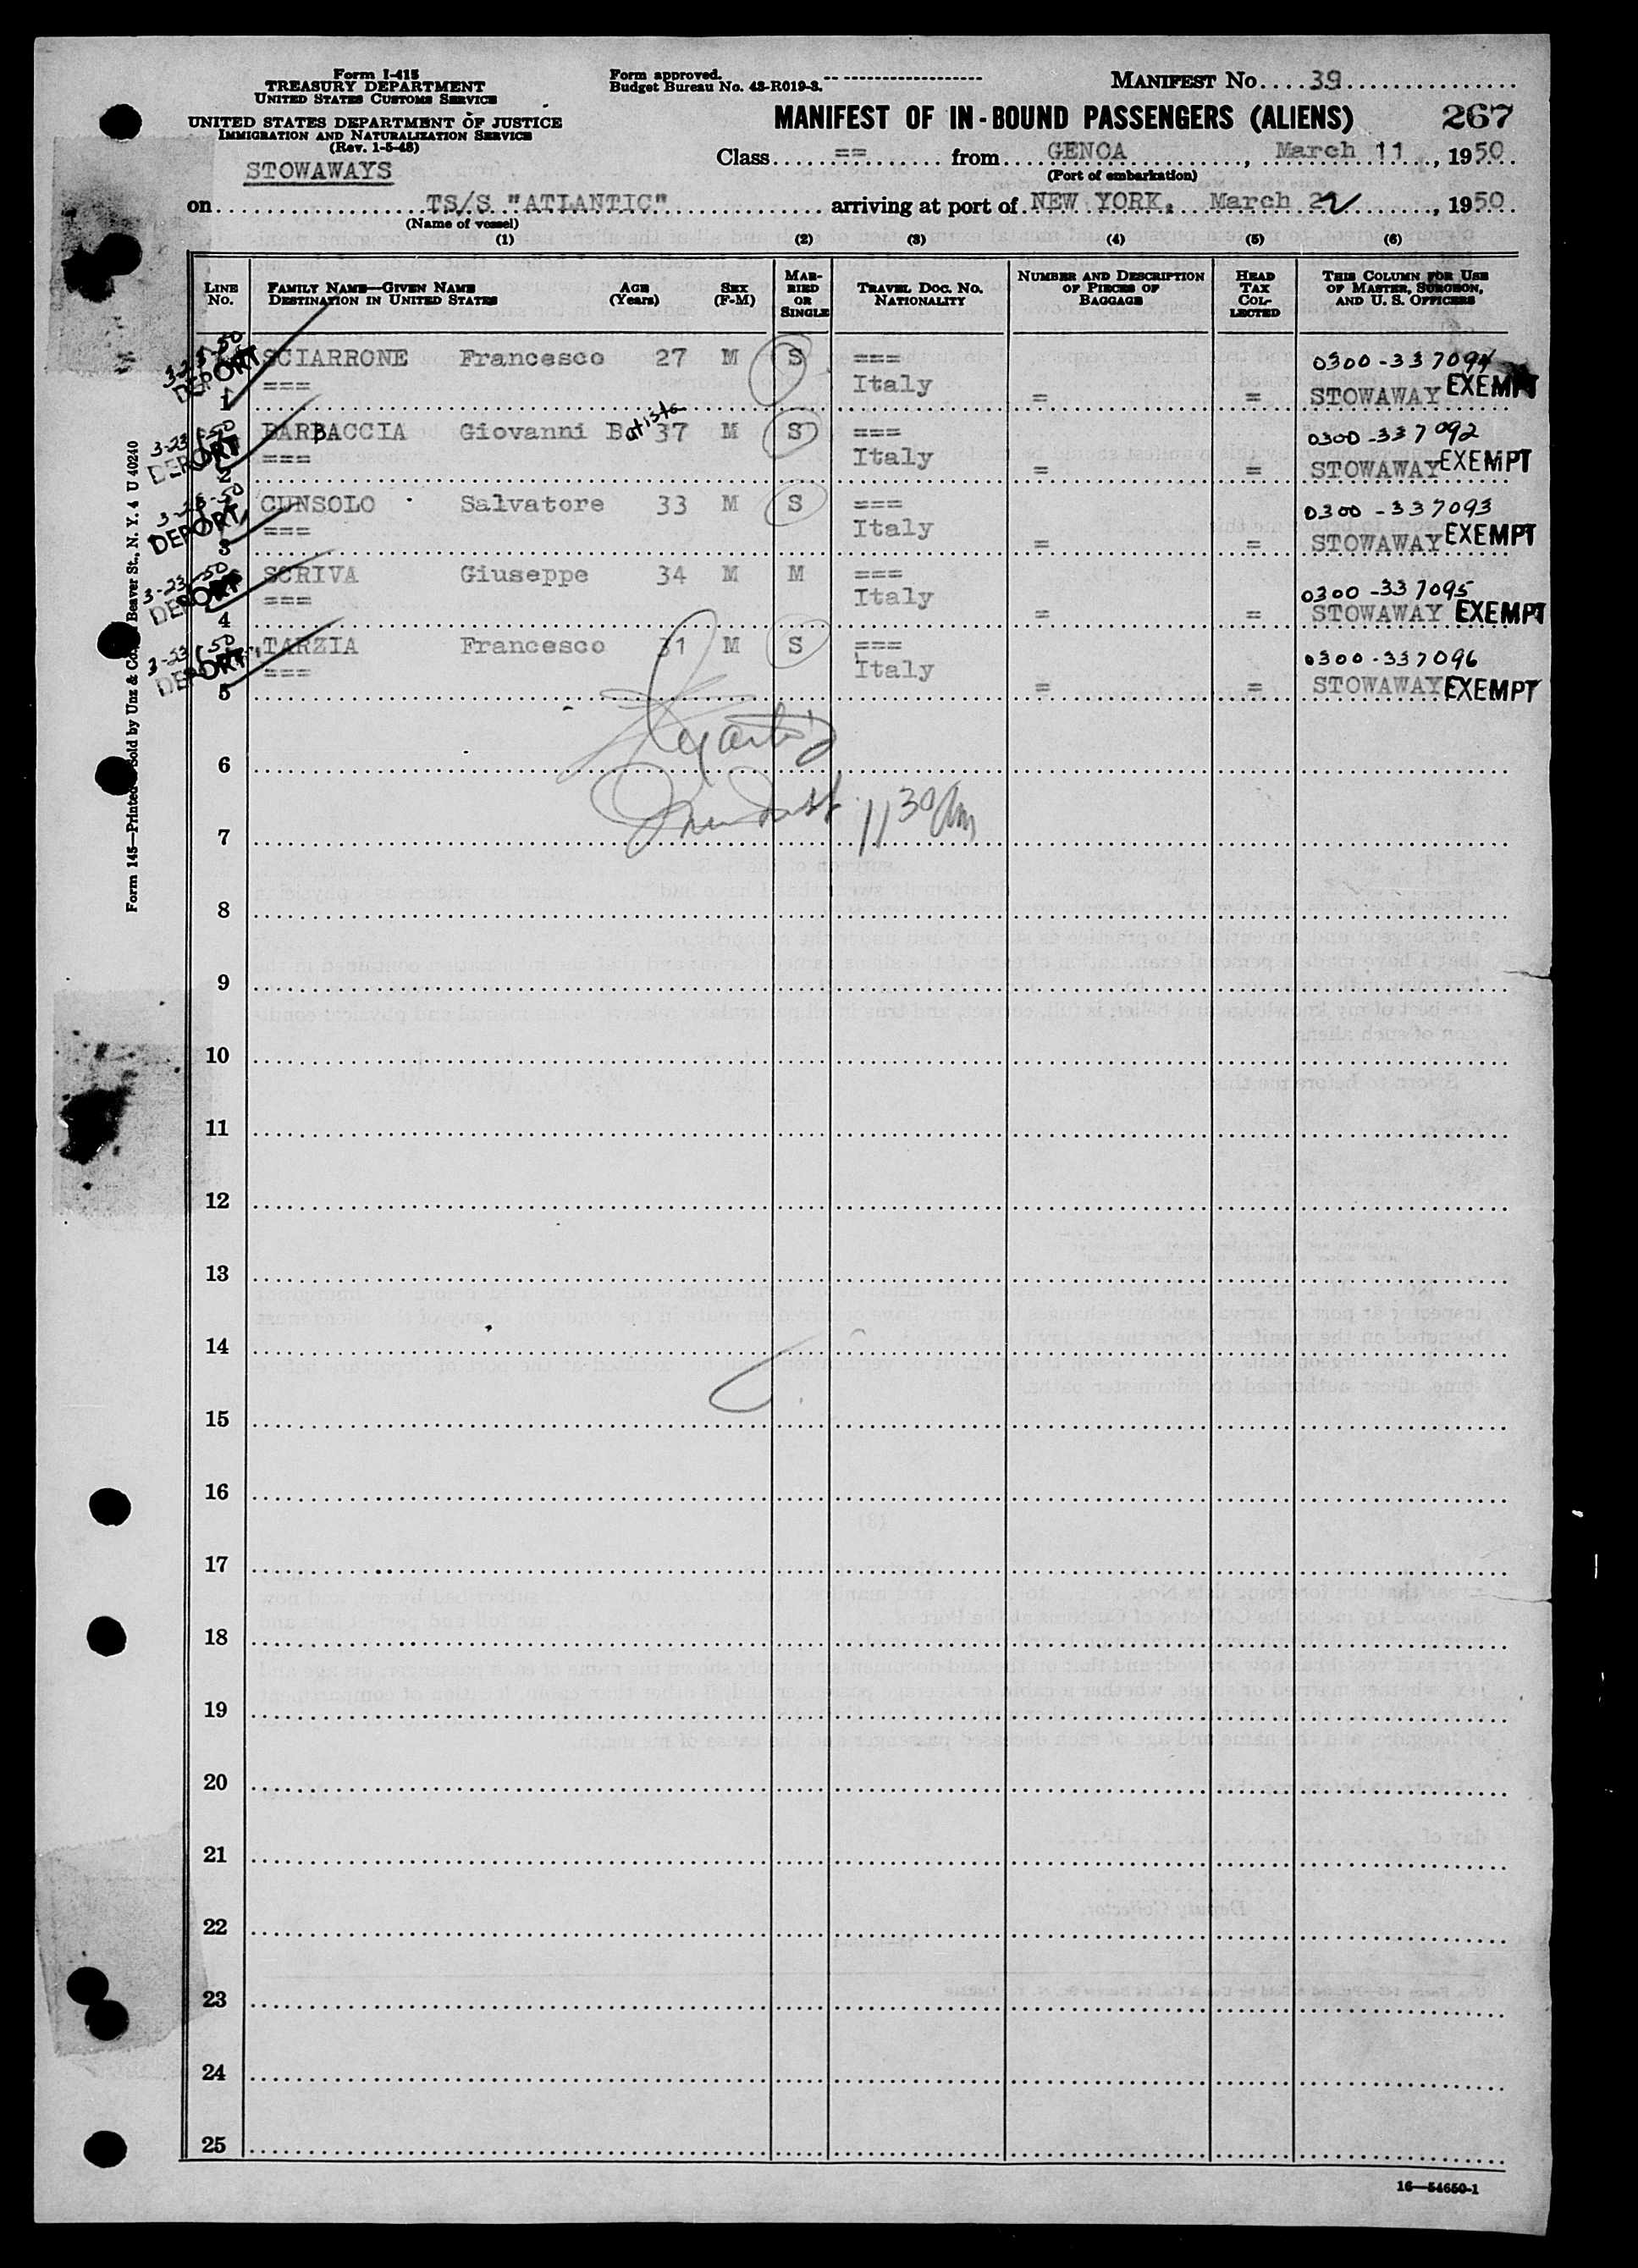 Form I-415
TREASURY DEPARTMENT
UNITED STATES CUSTOMS SERVICE
UNITED STATES DEPARTMENT OF JUSTICE
IMMIGRATION AND NATURALIZATION SERVICE
(Rev. 1-5-48)
Form approved.
Budget Bureau No. 43-R019-3.
MANIFEST No. 39
MANIFEST OF IN-BOUND PASSENGERS (ALIENS) 267
STOWAWAYS
Class == from GENOA, March 11, 1950
(Port of embarkation)
on TS/S "ATLANTIC" arriving at port of NEW YORK, March 22, 1950
(Name of vessel)
(1) (2) (3) (4) (5) (6)
LINE No. FAMILY NAME—GIVEN NAME DESTINATION IN UNITED STATES AGE (Years) SEX (F-M) MARRIED OR SINGLE TRAVEL DOC. NO. NATIONALITY NUMBER AND DESCRIPTION OF PIECES OF BAGGAGE HEAD TAX COLLECTED THIS COLUMN FOR USE OF MASTER, SURGEON, AND U. S. OFFICERS
3-23-50 SCIARRONE Francesco 27 M S === 0300-337094
DEPORT 1 === Italy = = STOWAWAY EXEMPT
3-23-50 BARBACCIA Giovanni Batista 37 M S === 0300-337092
DEPORT 2 === Italy = = STOWAWAY EXEMPT
3-23-50 CUNSOLO Salvatore 33 M S === 0300-337093
DEPORT 3 === Italy = = STOWAWAY EXEMPT
3-23-50 SCRIVA Giuseppe 34 M M === 0300-337095
DEPORT 4 === Italy = = STOWAWAY EXEMPT
3-23-50 TARZIA Francesco 31 M S === 0300-337096
DEPORT 5 === Italy = = STOWAWAY EXEMPT
6
7 11 30 am
8
9
10
11
12
13
14
15
16
17
18
19
20
21
22
23
24
25
16—54650-1
Form 145—Printed Sold by Unz & Co. Beaver St., N. Y. 4 U 40240